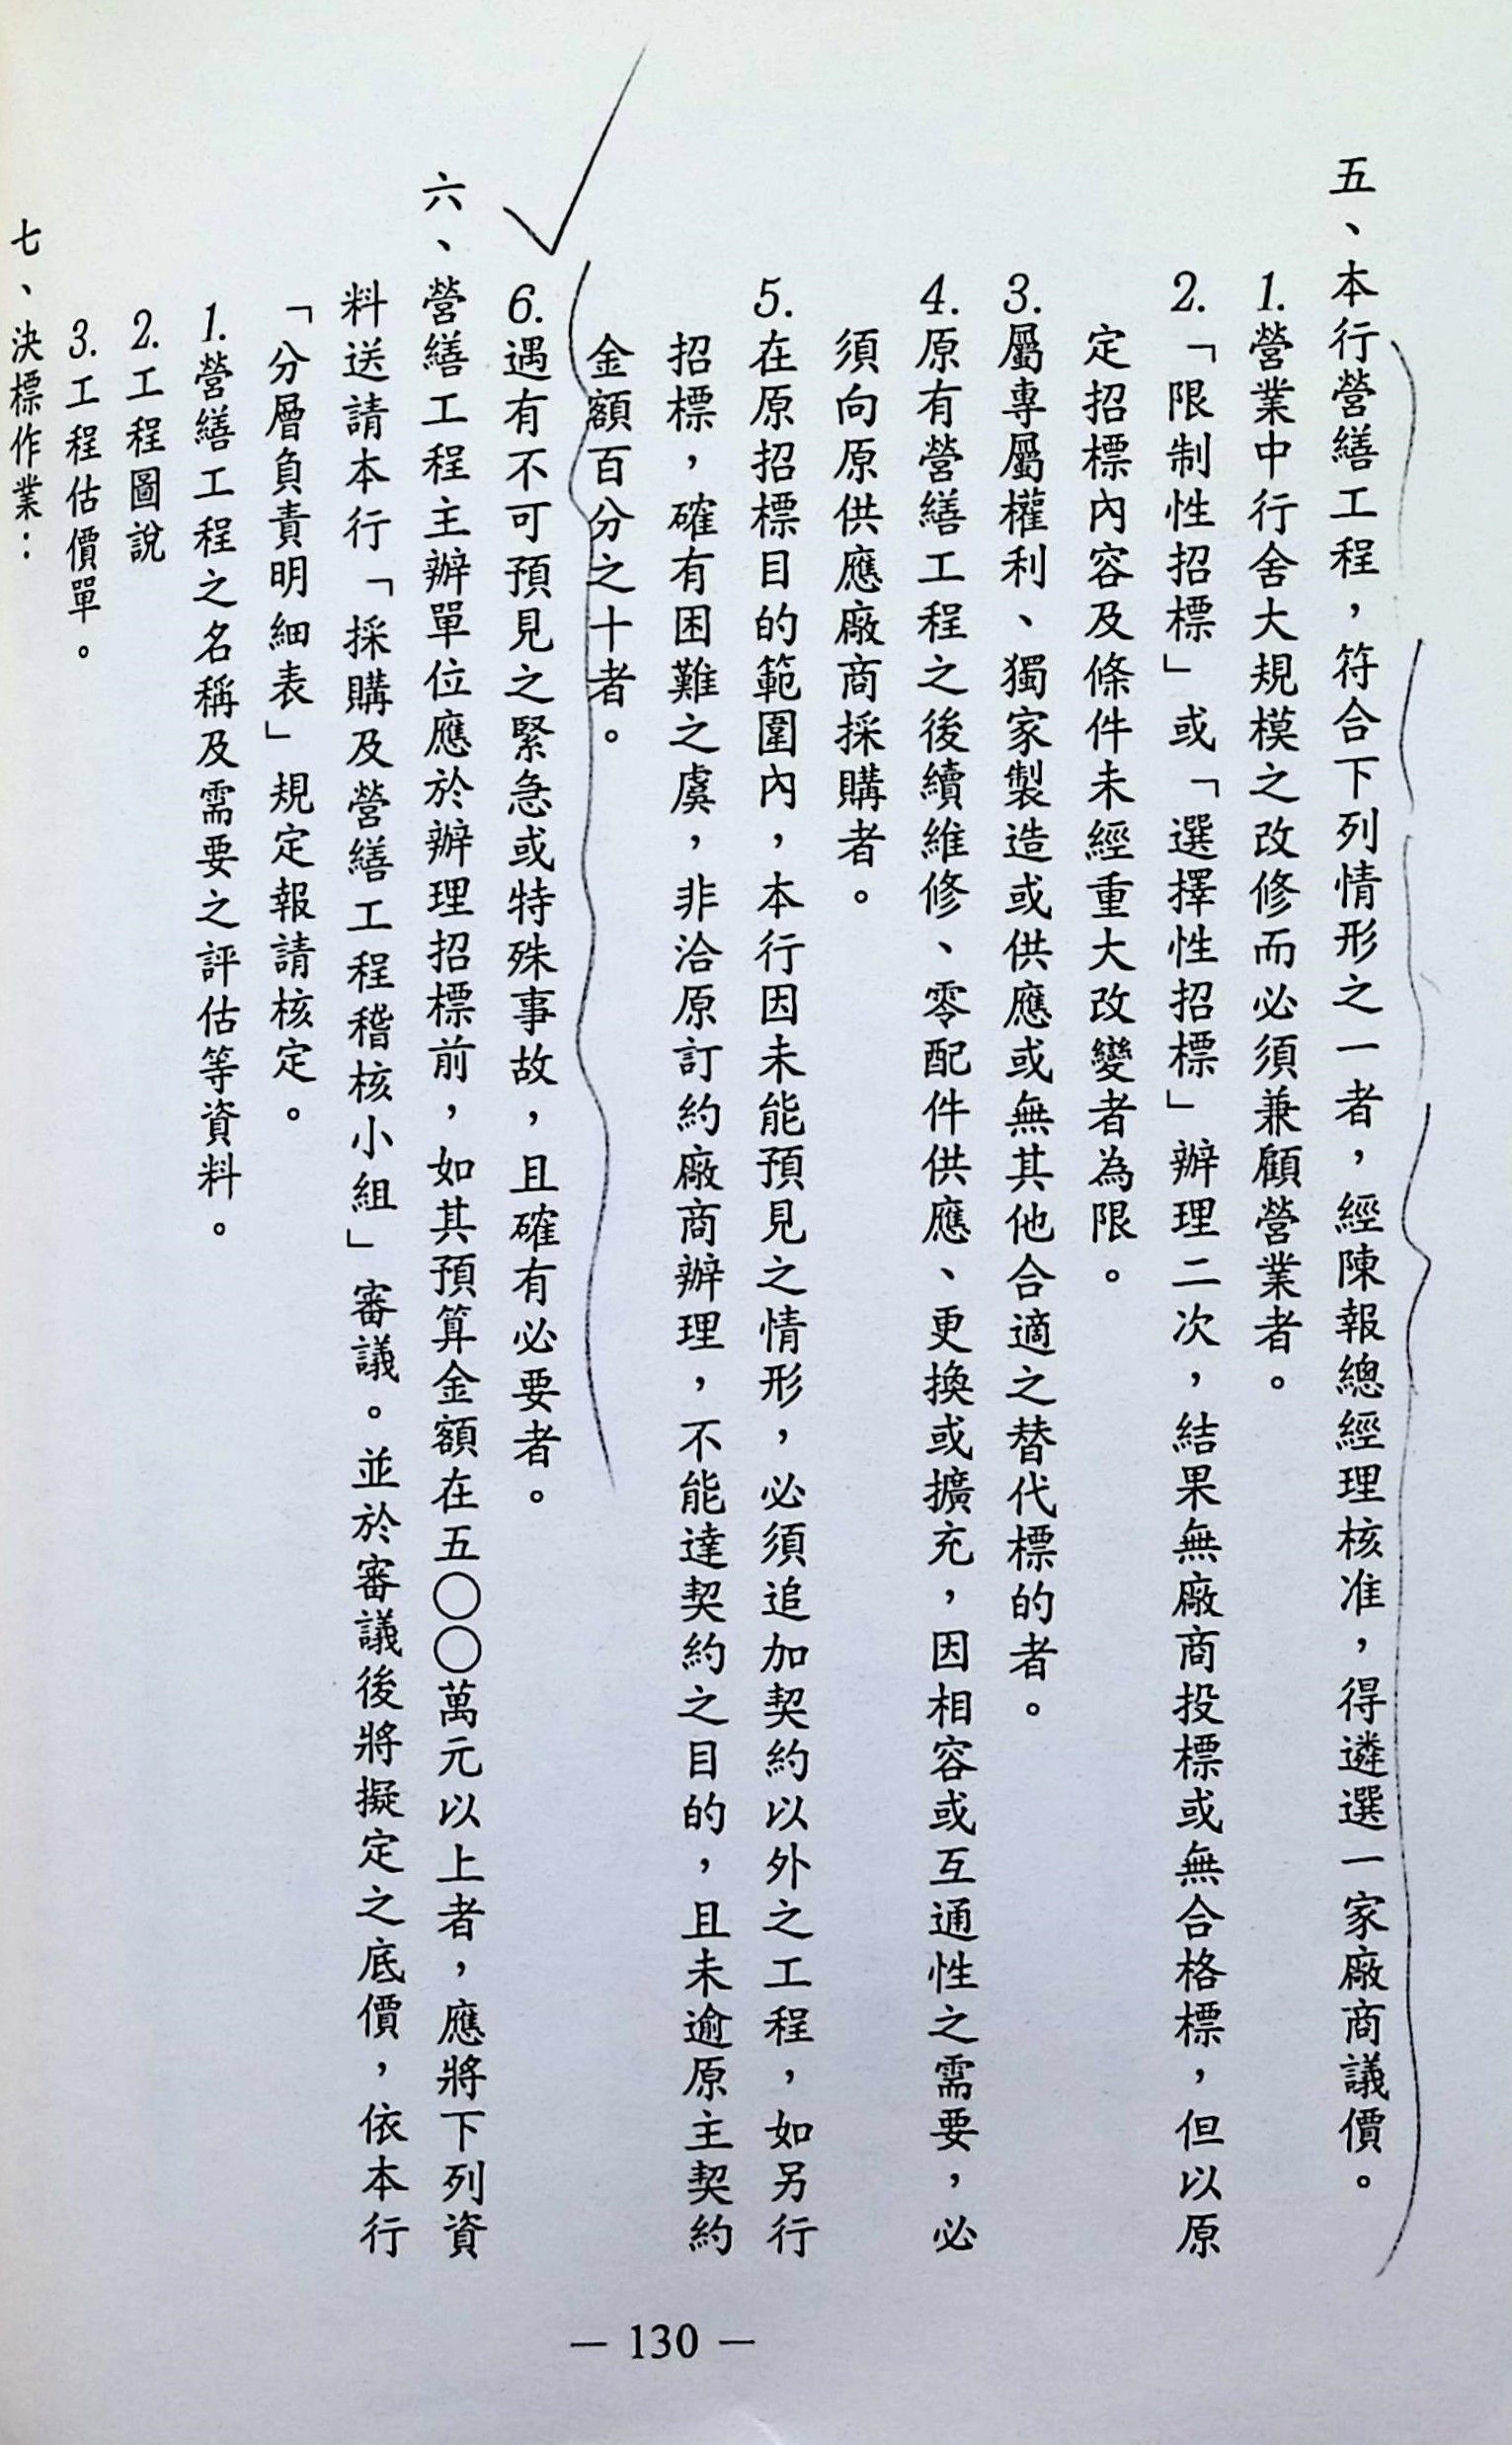 五、本行營繕工程，符合下列情形之一者，經陳報總經理核准，得遴選一家廠商議價。
1.營業中行舍大規模之改修而必須兼顧營業者。
2.「限制性招標」或「選擇性招標」辦理二次，結果無廠商投標或無合格標，但以原
定招標內容及條件未經重大改變者為限。
3.屬專屬權利、獨家製造或供應或無其他合適之替代標的者。
4.原有營繕工程之後續維修、零配件供應、更換或擴充，因相容或互通性之需要，必
須向原供應廠商採購者。
5.在原招標目的範圍內，本行因未能預見之情形，必須追加契約以外之工程，如另行
招標，確有困難之虞，非洽原訂約廠商辦理，不能達契約之目的，且未逾原主契約
金額百分之十者。
6.遇有不可預見之緊急或特殊事故，且確有必要者。
六、營繕工程主辦單位應於辦理招標前，如其預算金額在五○○萬元以上者，應將下列資
料送請本行「採購及營繕工程稽核小組」審議。並於審議後將擬定之底價，依本行
「分層負責明細表」規定報請核定。
1.營繕工程之名稱及需要之評估等資料。
2.工程圖說
3.工程估價單。
七、決標作業：
— 130 —